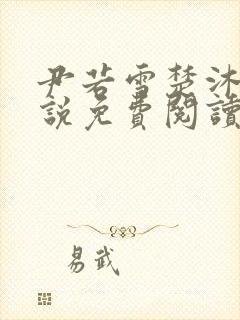 尹若雪楚沐
說免費閱讀
易武